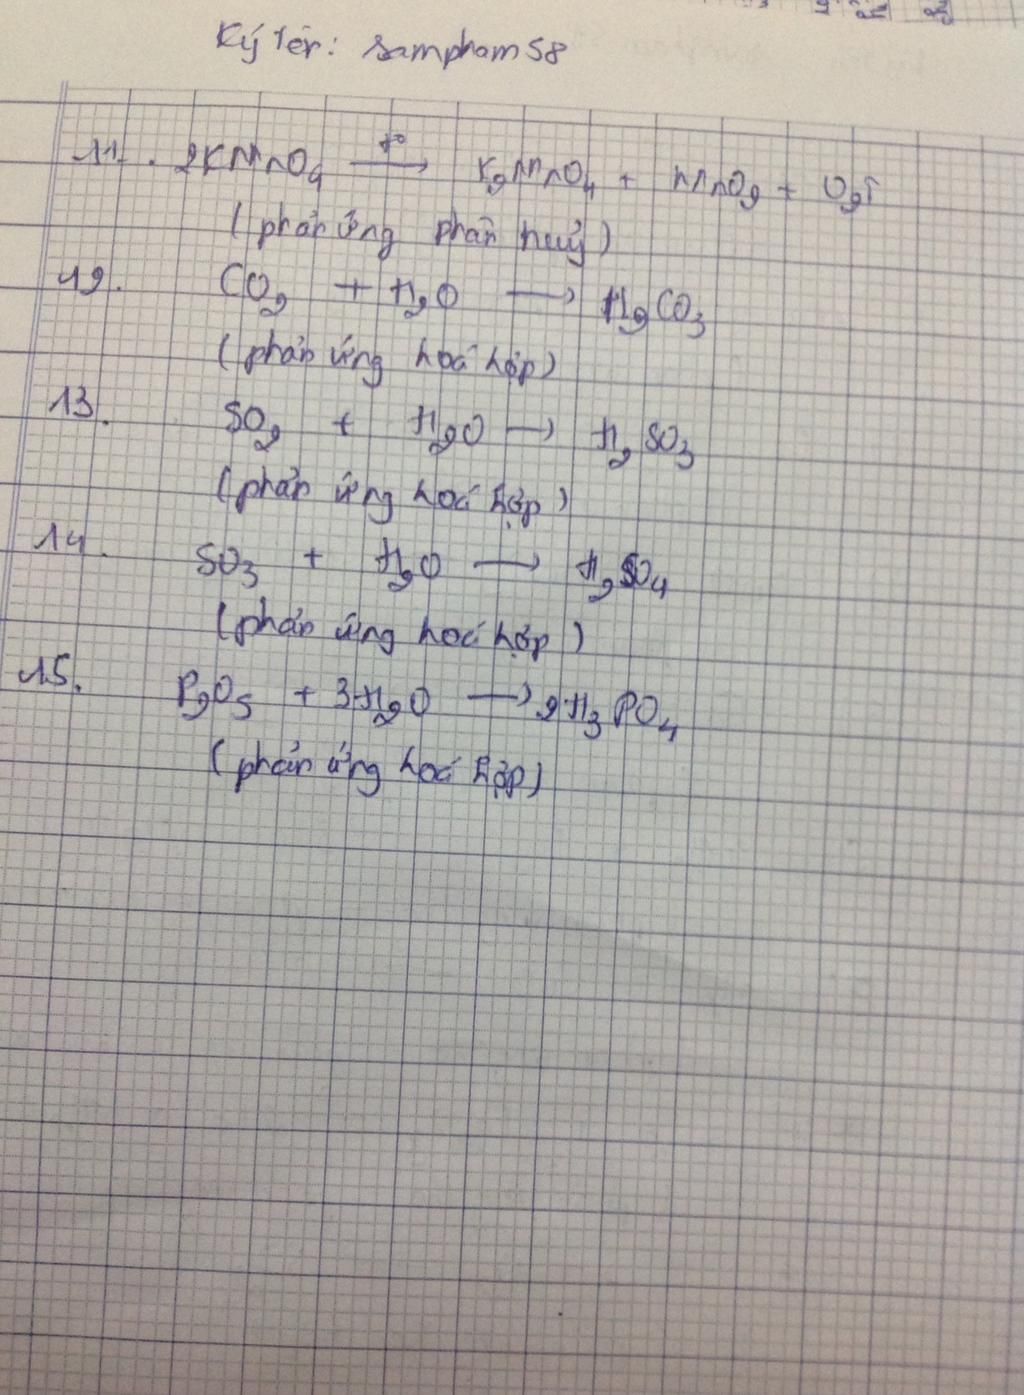 Ký tên: sampham58
11. 2KMnO₄ —t°→ K₂MnO₄ + MnO₂ + O₂↑
(phản ứng phân huỷ)
12. CO₂ + H₂O → H₂CO₃
(phản ứng hoá hợp)
13. SO₂ + H₂O → H₂SO₃
(phản ứng hoá hợp)
14. SO₃ + H₂O → H₂SO₄
(phản ứng hoá hợp)
15. P₂O₅ + 3H₂O → 2H₃PO₄
(phản ứng hoá hợp)